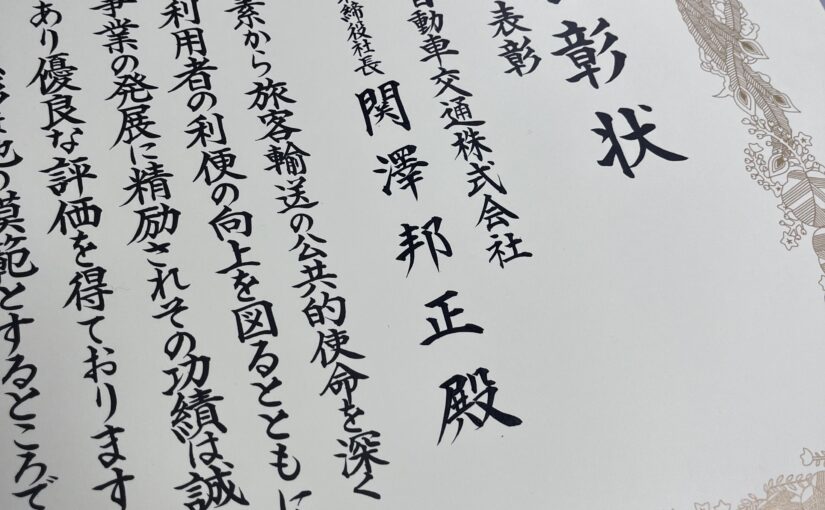 彰状
表彰
自動車交通株式会社
締役社長 関澤邦正殿
素から旅客輸送の公共的使命を深く
利用者の利便の向上を図るとともに
事業の発展に精励されその功績は誠
あり優良な評価を得ております
他の模範とするところで